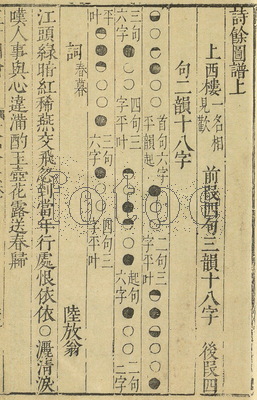 詩餘圖譜上
上西樓 一名相見歡 前段四句三韻十八字 後段四
句二韻十八字
首句六字平韻起 二句三字平叶
三句六字 四句三字平叶 起句六字 二句
平叶 三句六字 四句三字平叶
詞 春暮 陸放翁
江頭綠暗紅稀燕交飛忽到當年行處恨依依○灑清淚
嘆人事與心違滿酌玉壺花露送春歸